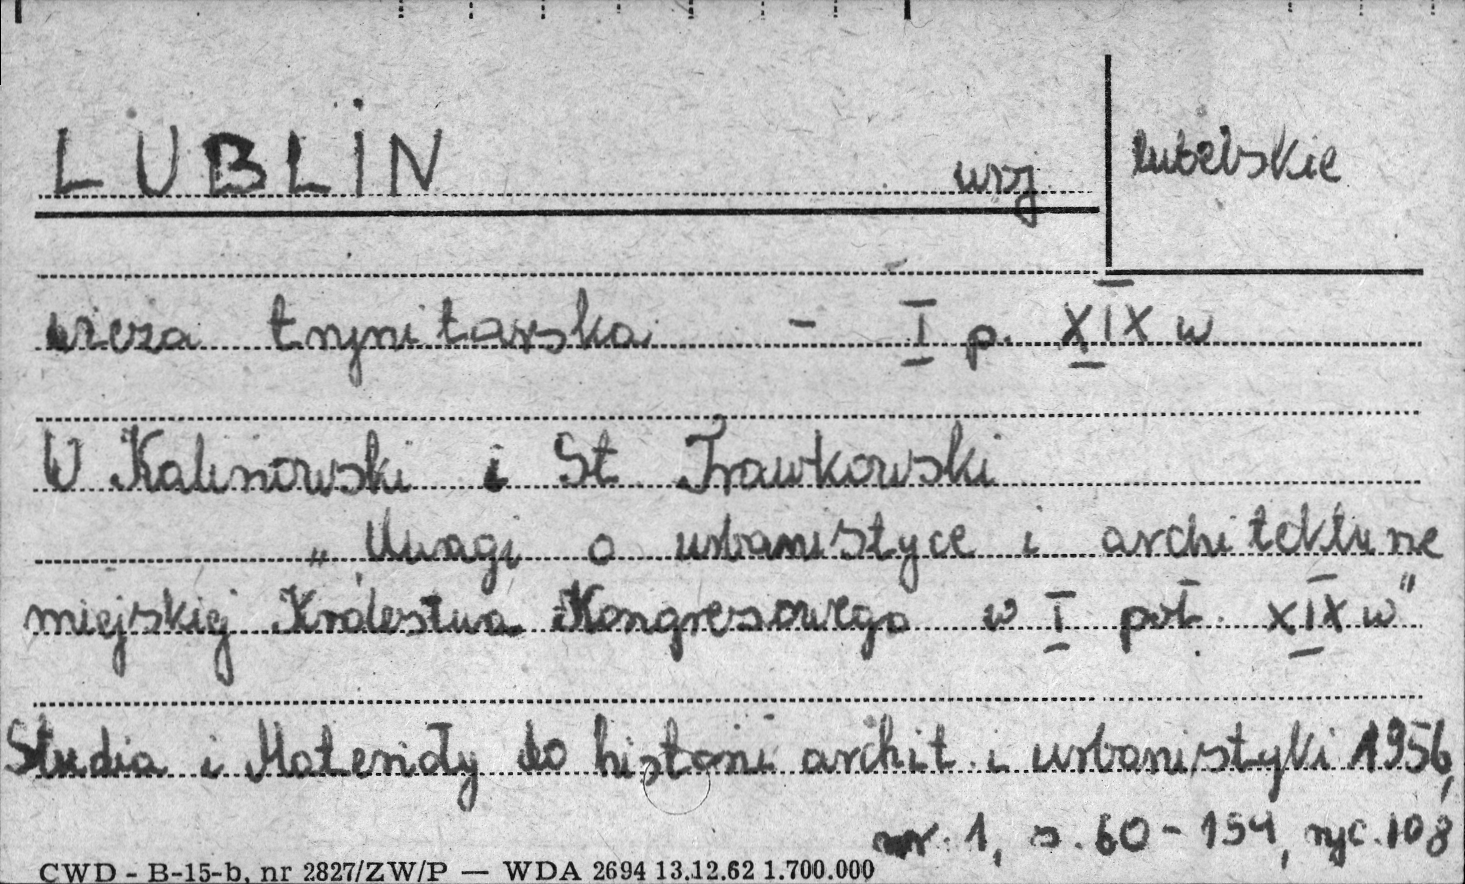 LUBLIN woj. lubelskie
wieża trynitarska - I p. XIX w
W Kalinowski i St Trawkowski
„Uwagi o urbanistyce i architekturze
miejskiej Królestwa Kongresowego w I poł. XIX w"
Studia i Materiały do historii archit. i urbanistyki 1956,
nr. 1, s. 60-154, ryc. 108
CWD - B-15-b, nr 2827/ZW/P — WDA 2694 13.12.62 1.700.000